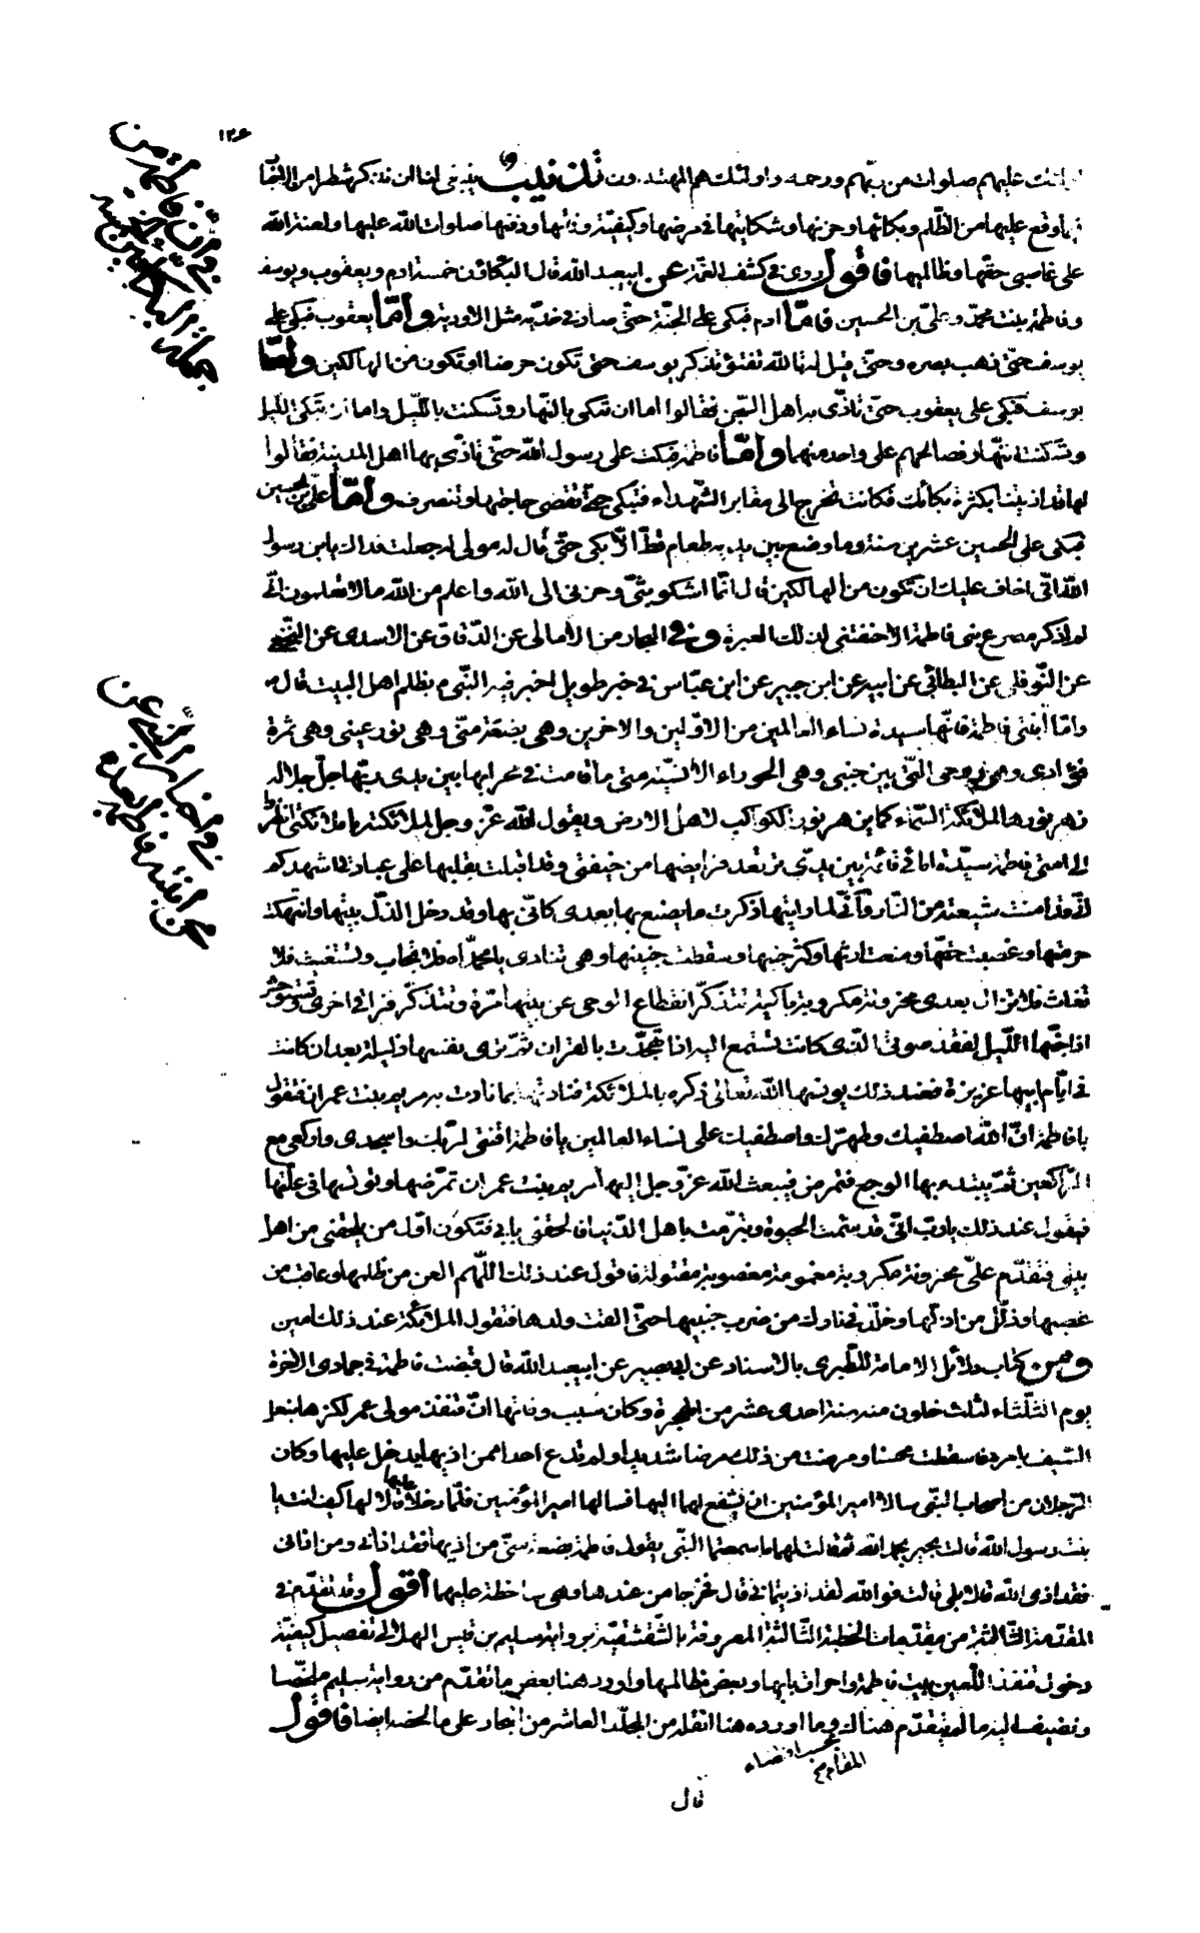 ١٢٤
اولئك عليهم صلوات من ربّهم ورحمة واولئك هم المهتدون تذنيب ينبغى لنا ان نذكر شطرا من الاخبار
فيما وقع عليها من الظّلم وبكائها وحزنها وشكايتها فى مرضها وكيفيّة وفاتها ودفنها صلوات اللّه عليها ولعنة اللّه
على غاصبى حقّها وظالميها فاقول روى فى كشف الغمّة عن ابيعبد اللّه قال البكّاؤن خمسة ادم ويعقوب ويوسف
وفاطمة بنت محمّد وعلىّ بن الحسين فامّا ادم فبكى على الجنّة حتّى صار فى خدّيه مثل الاودية وامّا يعقوب فبكى على
يوسف حتّى ذهب بصره وحتّى قيل له تاللّه تفتؤ تذكر يوسف حتى تكون حرضا او تكون من الهالكين وامّا
يوسف فبكى على يعقوب حتّى تاذّى به اهل السّجن فقالوا اما ان تبكى بالنّهار وتسكت باللّيل واما ان تبكى اللّيل
وتسكت النّهار فصالحهم على واحد منهما وامّا فاطمة فبكت على رسول اللّه حتّى تاذّى بها اهل المدينة فقالوا
لها قد اذيتنا بكثرة بكائك فكانت تخرج الى مقابر الشّهداء فتبكى حتّى تقضى حاجتها وتنصرف وامّا علىّ بن الحسين
فبكى على الحسين عشرين سنة وما وضع بين يديه طعام قطّ الاّ بكى حتّى قال له مولى له جعلت فداك يابن رسول
اللّه انّى اخاف عليك ان تكون من الهالكين قال انّما اشكو بثّى وحزنى الى اللّه واعلم من اللّه ما لا تعلمون انّى
لم اذكر مصرع بنى فاطمة الا خنقتنى لذلك العبرة وفى البحار من الامالى عن الدّقاق عن الاسدى عن النّخعى
عن النّوفلى عن البطائنى عن ابيه عن ابن جبير عن ابن عبّاس فى خبر طويل اخبر فيه النّبى بظلم اهل البيت قال
وامّا ابنتى فاطمة فانّها سيدة نساء العالمين من الاوّلين والاخرين وهى بضعة منّى وهى نور عينى وهى ثمرة
فؤادى وهى روحى الّتى بين جنبى وهى الحوراء الانسيّة متى ما قامت فى محرابها بين يدى ربّها جلّ جلاله
زهر نورها لملائكة السّماء كما يزهر نور الكواكب لاهل الارض ويقول اللّه عزّ وجل لملائكته يا ملائكتى انظروا
الى امتى فاطمة سيّدة امائى قائمة بين يدىّ ترتعد فرايضها من خيفتى وقد اقبلت بقلبها على عبادتى اشهدكم
انّى قد امنت شيعتها من النّار وانّى لما رايتها ذكرت ما يصنع بها بعدى كانّى بها وقد دخل الذلّ بيتها وانتهكت
حرمتها وغصبت حقّها ومنعت ارثها وكسر جنبها وسقطت جنينها وهى تنادى يا محمّداه فلا تجاب وتستغيث فلا
تغاث فلا تزال بعدى محزونة مكروبة باكية تتذكّر انقطاع الوحى عن بيتها مرّة وتتذكّر فراقى اخرى وتستوحش
اذا جنّها اللّيل لفقد صوتى الذى كانت تستمع اليه اذا تهجّدت بالقران ثمّ ترى نفسها ذليلة بعد ان كانت
فى ايّام ابيها عزيزة فعند ذلك يونسها اللّه تعالى ذكره بالملائكة فنادتها بما نادت به مريم بنت عمران فتقول
يا فاطمة انّ اللّه اصطفيك وطهّرك واصطفيك على نساء العالمين يا فاطمة اقنتى لربّك واسجدى واركعى مع
الرّاكعين ثمّ يبتدء بها الوجع فتمرض فيبعث اللّه عزّ وجل اليها مريم بنت عمران تمرّضها وتونسها فى علّتها
فتقول عند ذلك يا ربّ انّى قد سئمت الحيوة وتبرّمت باهل الدّنيا فالحقنى بابى فتكون اوّل من يلحقنى من اهل
بيتى فتقدّم علىّ محزونة مكروبة مغمومة مغصوبة مقتولة فاقول عند ذلك اللّهم العن من ظلمها وعاقب من
غصبها وذلّل من اذلّها وخلّد فى نارك من ضرب جنبيها حتّى القت ولدها فتقول الملائكة عند ذلك امين
ومن كتاب دلائل الامامة للطّبرى بالاسناد عن ابى بصير عن ابيعبد اللّه قال قبضت فاطمة فى جمادى الاخرة
يوم الثلّثاء لثلث خلون منه سنة احدى عشر من الهجرة وكان سبب وفاتها انّ قنفذ مولى عمر لكزها بنعل
السّيف بامره فاسقطت محسنا ومرضت من ذلك مرضا شديدا ولم تدع احدا ممن اذيها يدخل عليها وكان
الرّجلان من اصحاب النّبى سالا امير المؤمنين ان يشفع لهما اليها فسالها امير المؤمنين فلمّا دخلا عليها قالا لها كيف انت يا
بنت رسول اللّه قالت بخير بحمد اللّه ثم قالت لهما ما سمعتما النّبى يقول فاطمة بضعة منّى من اذيها فقد اذانى ومن اذانى
فقد اذى اللّه قالا بلى قالت فو اللّه لقد اذيتمانى قال فخرجا من عندها وهى ساخطة عليهما اقول وقد تقدّم فى
المقدّمة الثّالثة من مقدّمات الخطبة الثّالثة المعروفة بالشّقشقيّة برواية سليم بن قيس الهلالى تفصيل كيفيّة
دخول قنفذ اللّعين بيت فاطمة واحراق بابها وبعض مظالمها واورد هنا بعض ما تقدّم من رواية سليم ملخّصا
ونضيف اليه ما لم يتقدّم هناك وما اورده هنا انقله من المجلّد العاشر من البحار على ما لخّصه ايضا فاقول
بحسب اقتضاء
المقام
قال
فى انّ فاطمة من
جملة البكّائين الخمسة
فى اخبار النّبى عن
محن ابنته فاطمة بعده